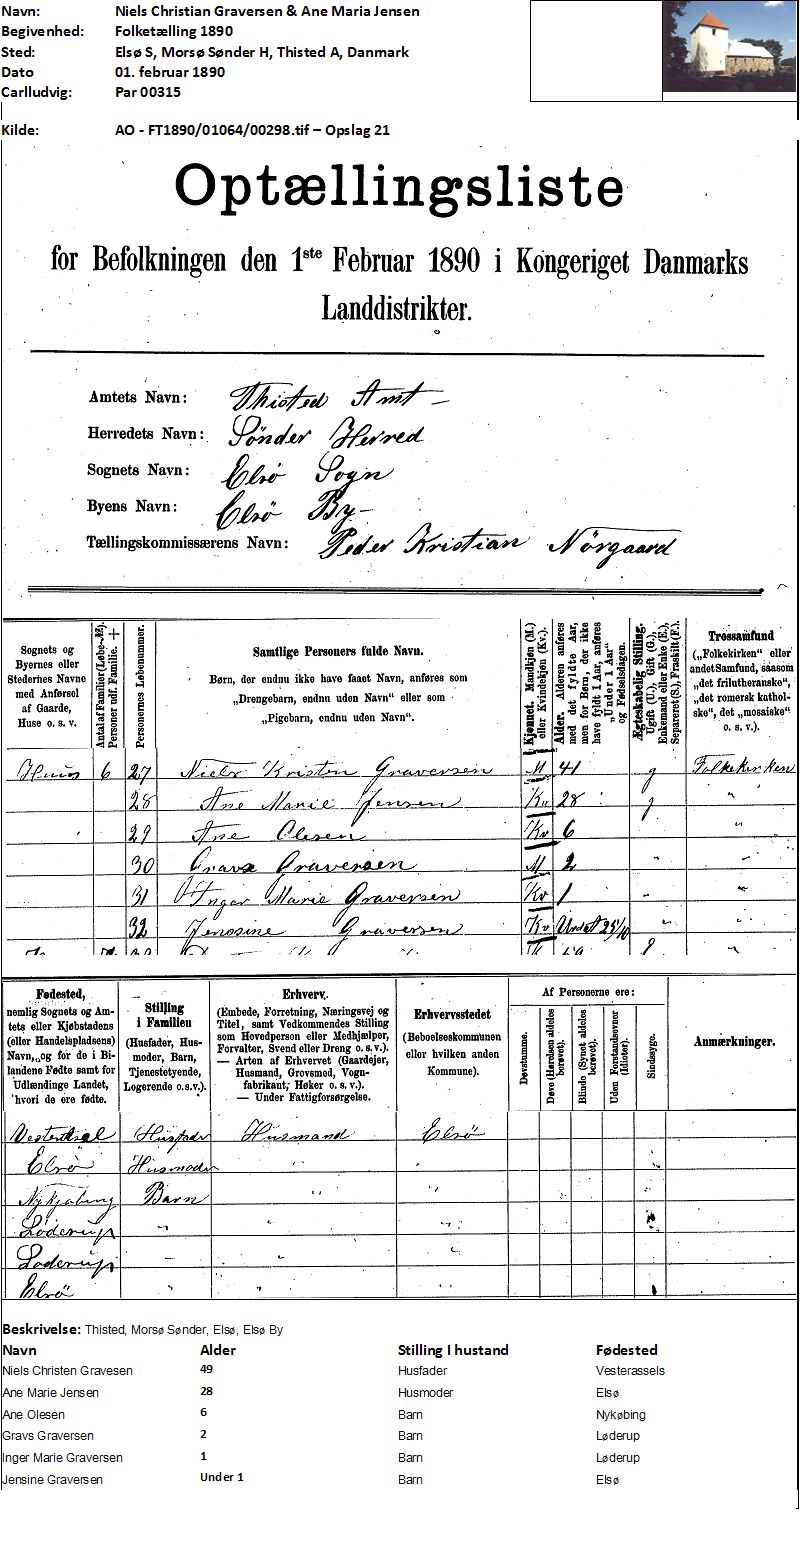 Navn: Niels Christian Graversen & Ane Maria Jensen
Begivenhed: Folketælling 1890
Sted: Elsø S, Morsø Sønder H, Thisted A, Danmark
Dato 01. februar 1890
Carlludvig: Par 00315
Kilde: AO - FT1890/01064/00298.tif – Opslag 21
Optællingsliste
for Befolkningen den 1ste Februar 1890 i Kongeriget Danmarks
Landdistrikter.
Amtets Navn: Thisted Amt
Herredets Navn: Sønder Herred
Sognets Navn: Elsö Sogn
Byens Navn: Elsö By
Tællingskommissærens Navn: Peder Kristian Nörgaard
Sognets og
Byernes eller
Stedernes Navne
med Anførsel
af Gaarde,
Huse o. s. v.
Antal af Familier (Løbe-№).
Personer udf. Familie. +
Personernes Løbenummer.
Samtlige Personers fulde Navn.
Børn, der endnu ikke have faaet Navn, anføres som
„Drengebarn, endnu uden Navn“ eller som
„Pigebarn, endnu uden Navn“.
Kjønnet. Mandkjøn (M.)
eller Kvindekjøn (Kv.).
Alder. Alderen anføres
med det fyldte Aar,
men for Børn, der ikke
have fyldt 1 Aar, anføres
„Under 1 Aar“
og Fødselsdagen.
Ægteskabelig Stilling.
Ugift (U.), Gift (G.),
Enkemand eller Enke (E.),
Separeret (S.), Fraskilt (F.).
Trossamfund
(„Folkekirken“ eller
andet Samfund, saasom
„det frilutheranske“,
„det romersk kathol-
ske“, det „mosaiske“
o. s. v.).
Huus 6 27 Niels Kristen Graversen M 41 g Folkekirken
28 Ane Marie Jensen Kv 28 g "
29 Ane Olesen Kv 6 "
30 Gravs Graversen M 2 " "
31 Inger Marie Graversen Kv 1 " "
32 Jensine Graversen Kv Under 1 25/10 " "
Fødested,
nemlig Sognets og Am-
tets eller Kjøbstadens
(eller Handelspladsens)
Navn, og for de i Bi-
landene Fødte samt for
Udlændinge Landet,
hvori de ere fødte.
Stilling
i Familien
(Husfader, Hus-
moder, Barn,
Tjenestetyende,
Logerende o.s.v.).
Erhverv.
(Embede, Forretning, Næringsvej og
Titel, samt Vedkommendes Stilling
som Hovedperson eller Medhjælper,
Forvalter, Svend eller Dreng o. s. v.).
— Arten af Erhvervet (Gaardejer,
Husmand, Grovsmed, Vogn-
fabrikant, Høker o. s. v.).
— Under Fattigforsørgelse.
Erhvervsstedet
(Beboelseskommunen
eller hvilken anden
Kommune).
Af Personerne ere:
Døvstumme.
Døve (Hørelsen aldeles
berøvet).
Blinde (Synet aldeles
berøvet).
Uden Forstandsevner
(Idioter).
Sindssyge.
Anmærkninger.
Vesterassel Husfader Husmand Elsö
Elsö Husmoder "
Nykjøbing Barn " "
Løderup " " "
Løderup " " "
Elsö " "
Beskrivelse: Thisted, Morsø Sønder, Elsø, Elsø By
Navn Alder Stilling I hustand Fødested
Niels Christen Gravesen 49 Husfader Vesterassels
Ane Marie Jensen 28 Husmoder Elsø
Ane Olesen 6 Barn Nykøbing
Gravs Graversen 2 Barn Løderup
Inger Marie Graversen 1 Barn Løderup
Jensine Graversen Under 1 Barn Elsø